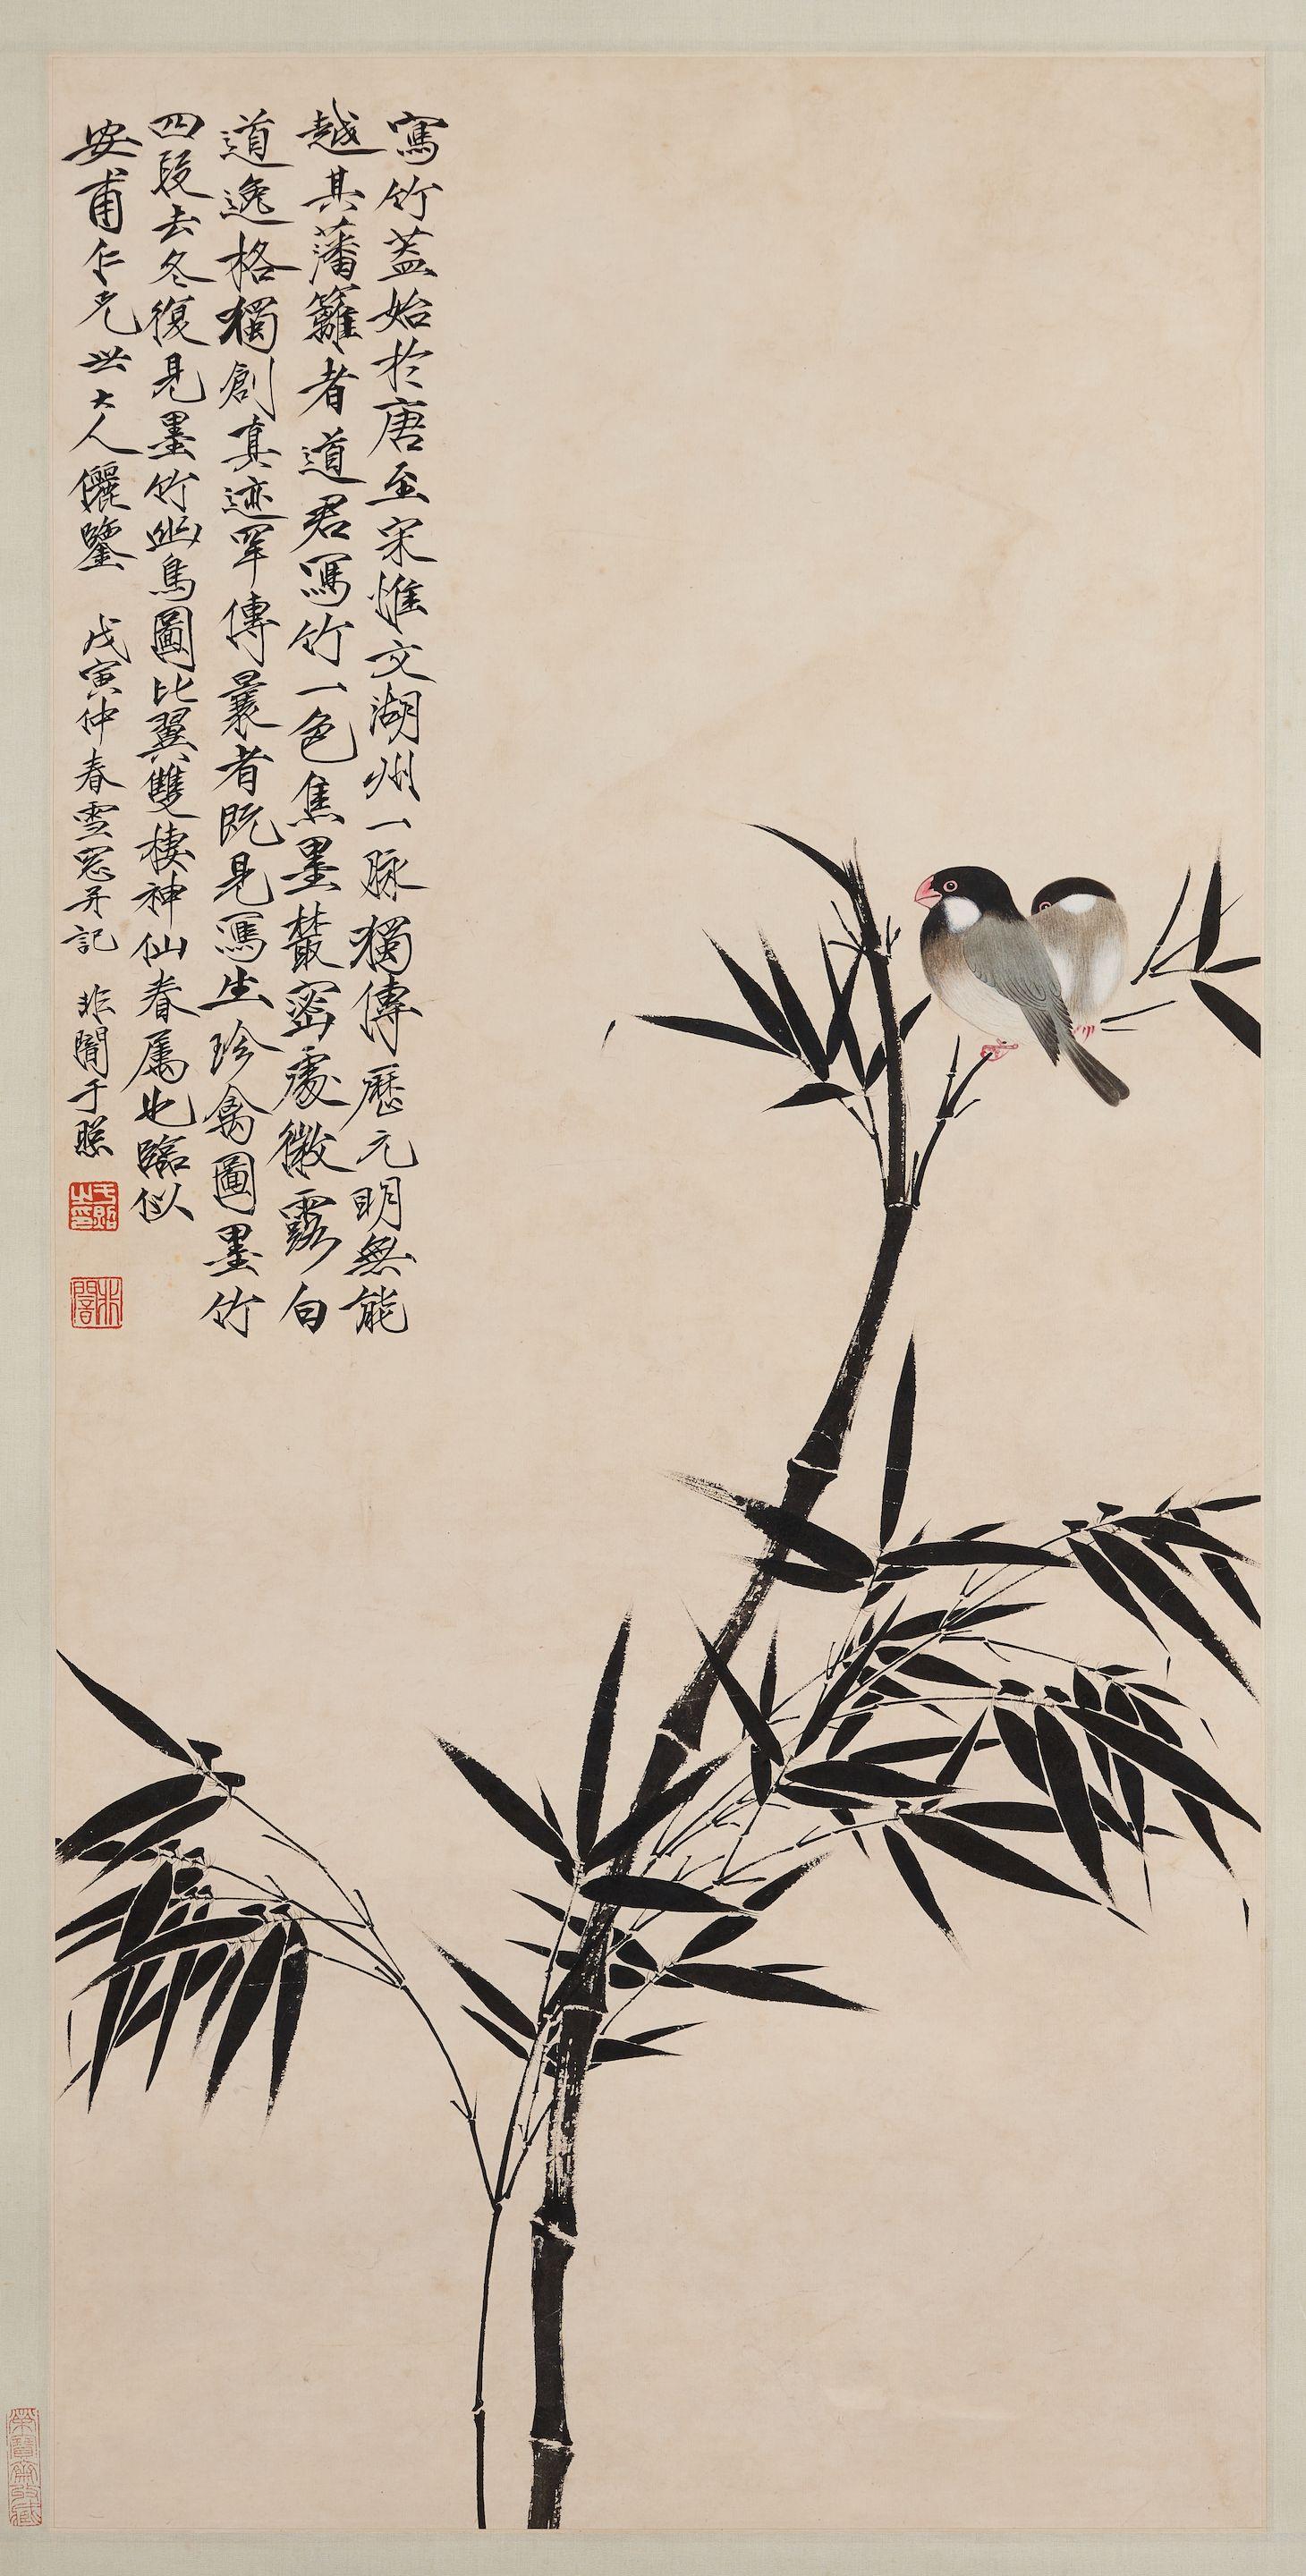 寫竹蓋始於唐至宋惟文湖州一脉獨傳歷元明無能
越其藩籬者道君寫竹一色焦墨叢密處微露白
道逸格獨創真迹罕傳曩者既見寫生珍禽圖墨竹
四段去冬復見墨竹幽鳥圖比翼雙棲神仙眷屬也臨似
安甫仁兄世大人儷鑒 戊寅仲春雪窓并記 非闇于照
于照之印
非闇
榮寶齋收藏